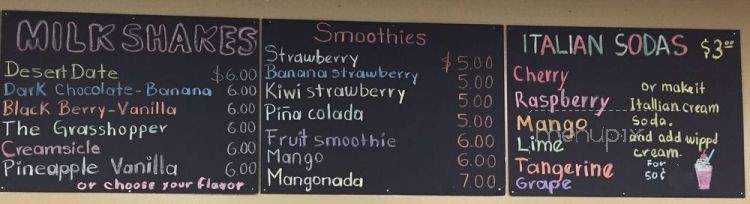 MILK SHAKES
Desert Date $6.00
Dark Chocolate-Banana 6.00
Black Berry-Vanilla 6.00
The Grasshopper 6.00
Creamsicle 6.00
Pineapple Vanilla 6.00
or choose your flavor
Smoothies
Strawberry $5.00
Banana strawberry 5.00
Kiwi strawberry 5.00
Piña colada 5.00
Fruit smoothie 6.00
Mango 6.00
Mangonada 7.00
ITALIAN SODAS $3.00
Cherry
Raspberry
Mango
Lime
Tangerine
Grape
or make it
Itallian cream
Soda.
and add wippd
cream.
For
50¢
menupix